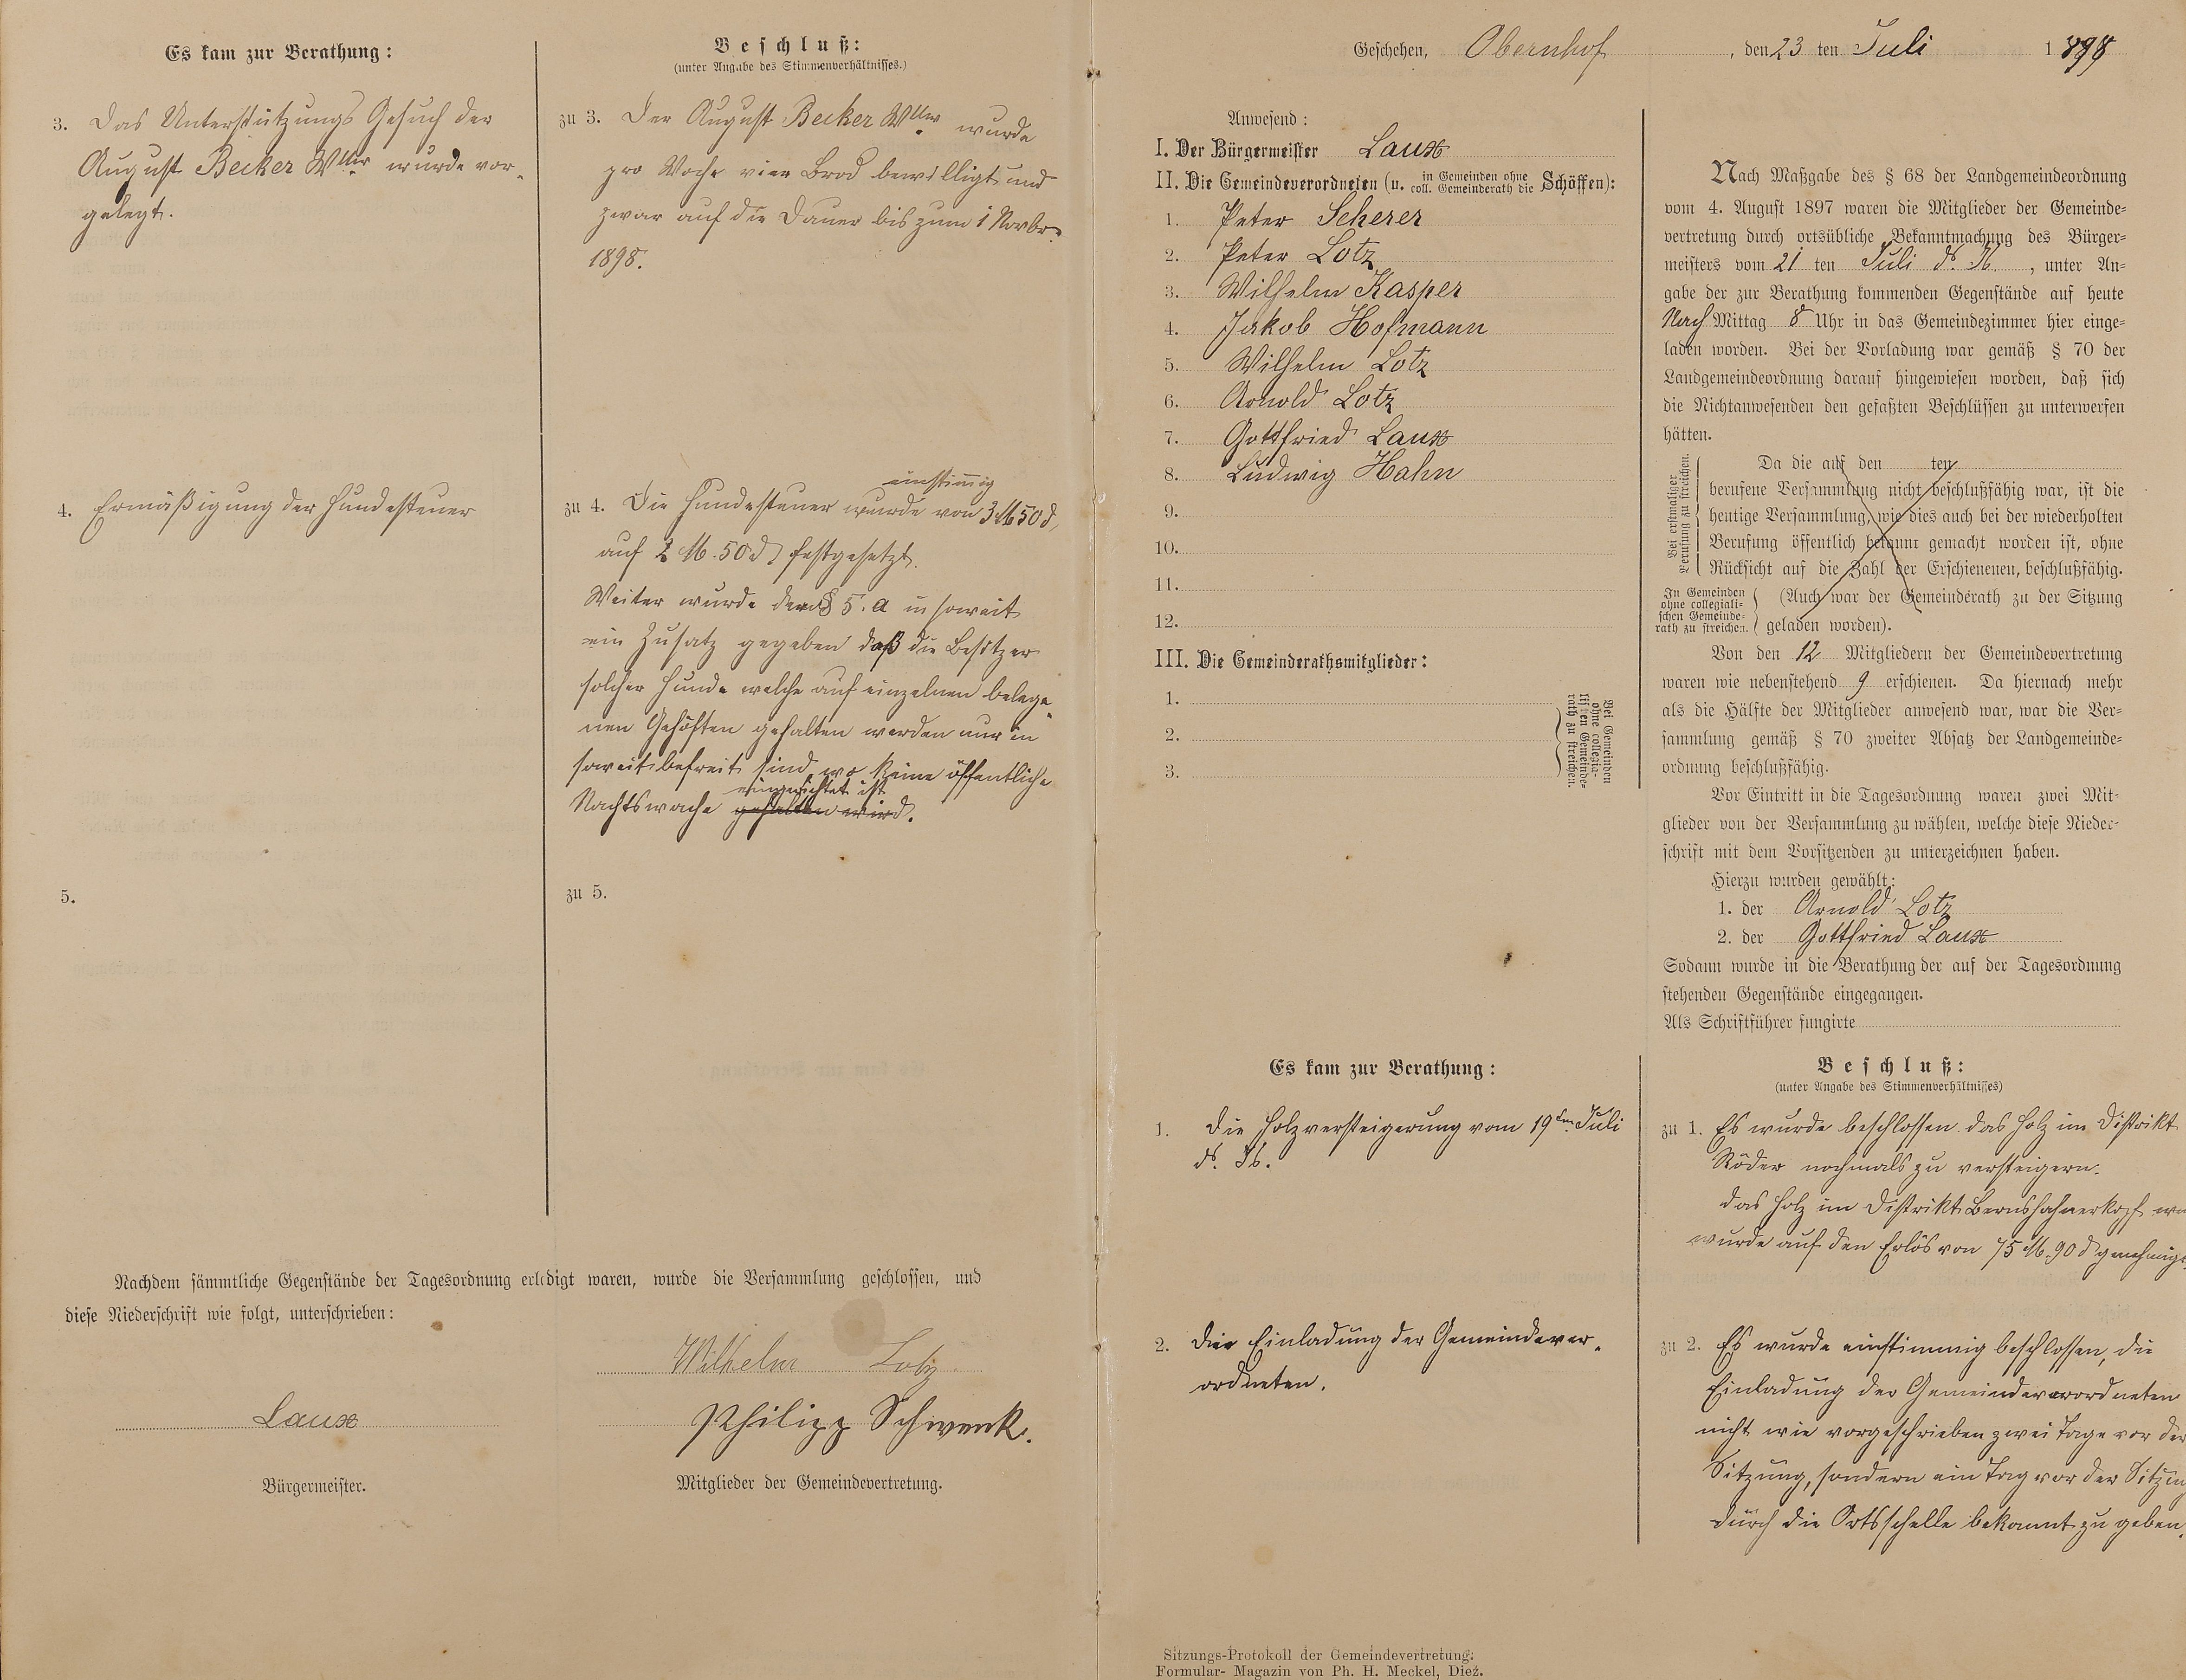 Es kam zur Berathung:
3. Das Unterstützungs Gesuch der
August Becker Wttw wurde vor-
gelegt.
4. Ermäßigung der Hundesteuer
5.
Beschluß:
(unter Angabe des Stimmenverhältnisses.)
zu 3. Der August Becker Wttw wurde
pro Woche vier Brod bewilligt und
zwar auf die Dauer bis zum 1 Novbr.
1898.
einstimmig
zu 4. Die Hundesteuer wurde von 3 M 50 d
auf 2 M. 50 d festgesetzt.
Weiter wurde dem § 5. a in soweit
ein Zusatz gegeben daß die Besitzer
solcher Hunde welche auf einzelnen belege-
nen Gehöften gehalten werden nur in
soweit befreit sind wo keine öffentliche
eingerichtet ist
Nachtswache gehalten wird.
zu 5.
Nachdem sämmtliche Gegenstände der Tagesordnung erledigt waren, wurde die Versammlung geschlossen, und
diese Niederschrift wie folgt, unterschrieben:
Wilhelm Lotz
Laux
Philipp Schwenk.
Bürgermeister.
Mitglieder der Gemeindevertretung.
Geschehen, Obernhof, den 23 ten Juli 1898
Anwesend:
I. Der Bürgermeister Laux
II. Die Gemeindeverordneten (u. in Gemeinden ohne coll. Gemeinderath die Schöffen):
1. Peter Scherer
2. Peter Lotz
3. Wilhelm Kasper
4. Jakob Hofmann
5. Wilhelm Lotz
6. Arnold Lotz
7. Gottfried Laux
8. Ludwig Hahn
9.
10.
11.
12.
III. Die Gemeinderathsmitglieder:
1.
2.
3.
Bei Gemeinden
ohne collegia-
lischen Gemeinde-
rath zu streichen.
Nach Maßgabe des § 68 der Landgemeindeordnung
vom 4. August 1897 waren die Mitglieder der Gemeinde-
vertretung durch ortsübliche Bekanntmachung des Bürger-
meisters vom 21 ten Juli d. Js., unter An-
gabe der zur Berathung kommenden Gegenstände auf heute
Nach Mittag 8 Uhr in das Gemeindezimmer hier einge-
laden worden. Bei der Vorladung war gemäß § 70 der
Landgemeindeordnung darauf hingewiesen worden, daß sich
die Nichtanwesenden den gefaßten Beschlüssen zu unterwerfen
hätten.
Bei erstmaliger
Berufung zu streichen.
Da die auf den ten
berufene Versammlung nicht beschlußfähig war, ist die
heutige Versammlung, wie dies auch bei der wiederholten
Berufung öffentlich bekannt gemacht worden ist, ohne
Rücksicht auf die Zahl der Erschienenen, beschlußfähig.
In Gemeinden
ohne collegiali-
schen Gemeinde-
rath zu streichen.
(Auch war der Gemeinderath zu der Sitzung
geladen worden).
Von den 12 Mitgliedern der Gemeindevertretung
waren wie nebenstehend 9 erschienen. Da hiernach mehr
als die Hälfte der Mitglieder anwesend war, war die Ver-
sammlung gemäß § 70 zweiter Absatz der Landgemeinde-
ordnung beschlußfähig.
Vor Eintritt in die Tagesordnung waren zwei Mit-
glieder von der Versammlung zu wählen, welche diese Nieder-
schrift mit dem Vorsitzenden zu unterzeichnen haben.
Hierzu wurden gewählt:
1. der Arnold Lotz
2. der Gottfried Laux
Sodann wurde in die Berathung der auf der Tagesordnung
stehenden Gegenstände eingegangen.
Als Schriftführer fungirte
Es kam zur Berathung:
1. Die Holzversteigerung vom 19ten Juli
d. Js.
2. Die Einladung der Gemeindever-
ordneten.
Beschluß:
(unter Angabe des Stimmenverhältnisses)
zu 1. Es wurde beschlossen das Holz im Distrikt
Röder nochmals zu versteigern.
das Holz im Distrikt Bernshahnerkopf
wurde auf den Erlös von 75 M. 90 d genehmigt
zu 2. Es wurde einstimmig beschlossen, die
Einladung der Gemeindeverordneten
nicht wie vorgeschrieben zwei Tage vor der
Sitzung, sondern ein Tag vor der Sitzung
durch die Ortsschelle bekannt zu geben.
Sitzungs-Protokoll der Gemeindevertretung.
Formular-Magazin von Ph. H. Meckel, Diez.